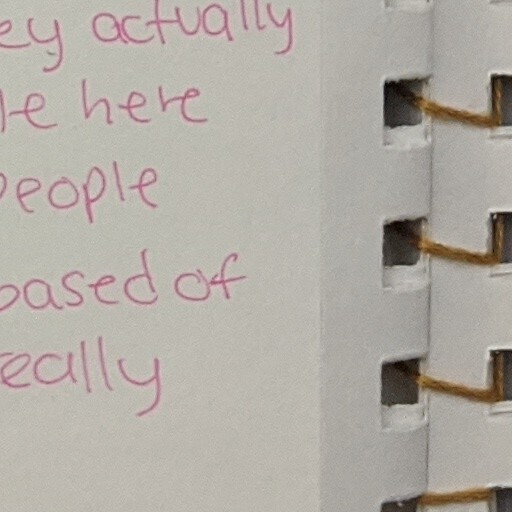 ey actually
le here
people
based of
eally